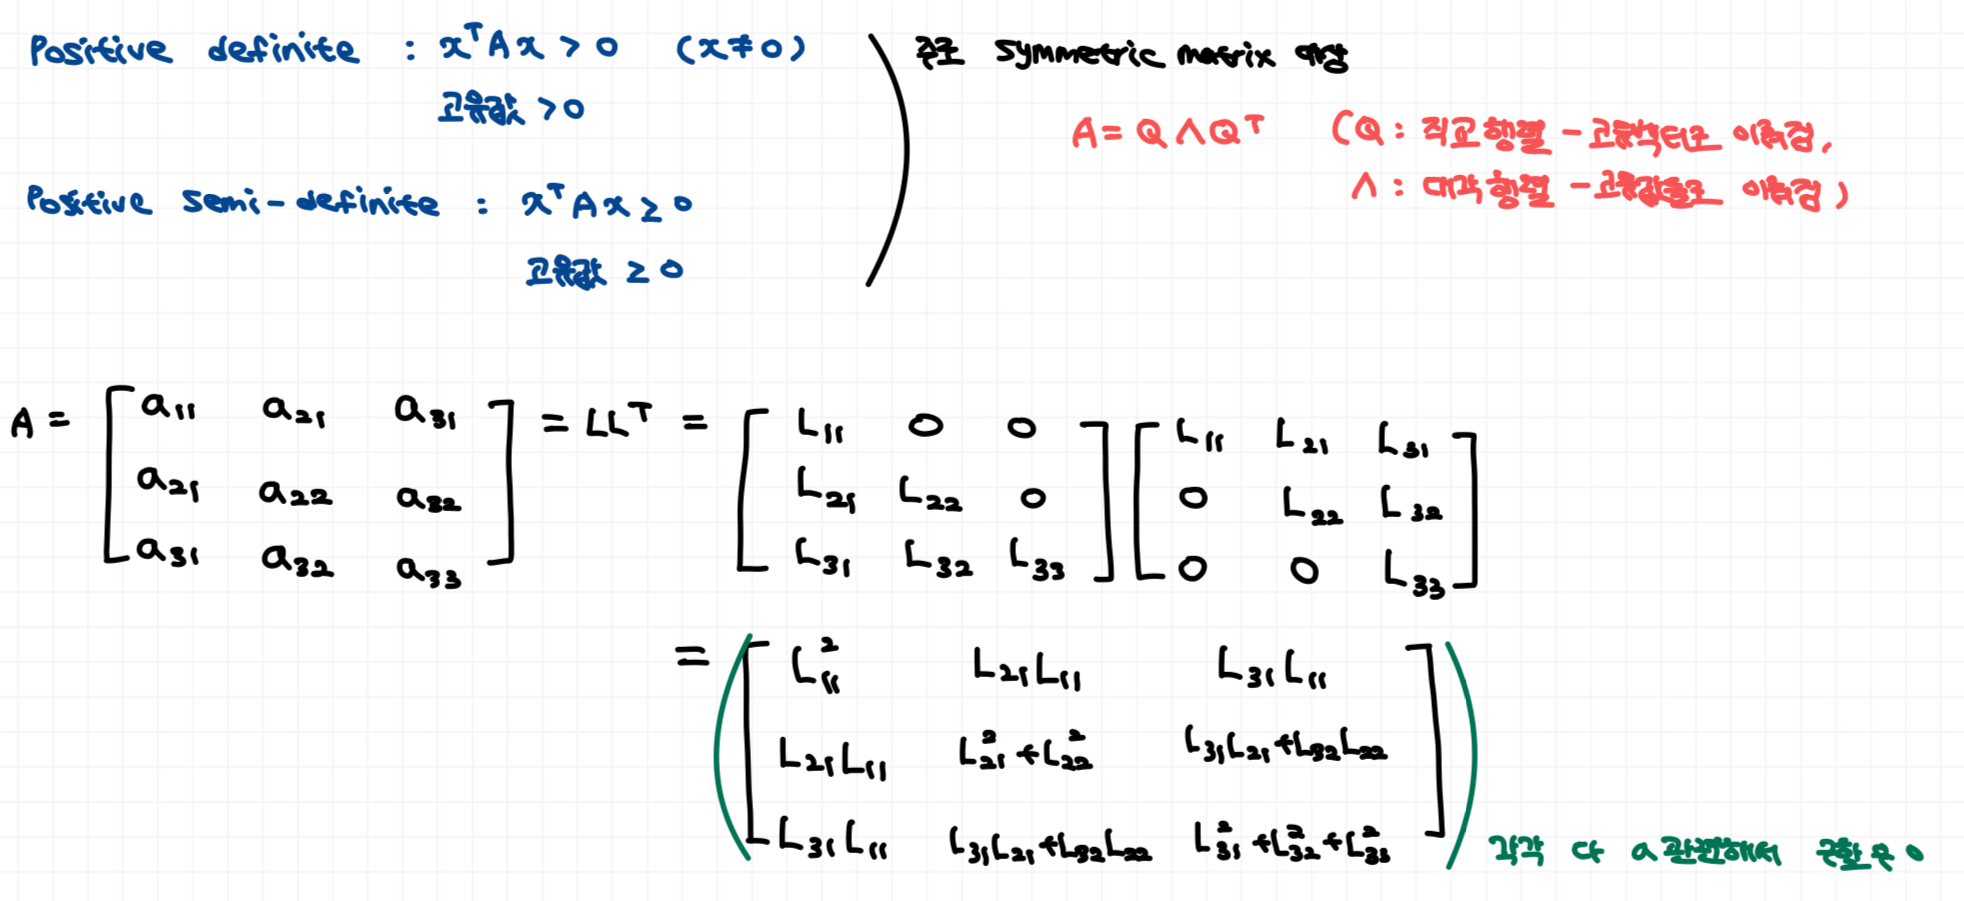 Positive definite : xᵀAx > 0 (x≠0)
고유값 > 0
Positive semi-definite : xᵀAx ≥ 0
고유값 ≥ 0
주로 symmetric matrix 대상
A = QΛQᵀ (Q : 직교행렬 - 고유벡터로 이뤄짐,
Λ : 대각행렬 - 고유값들로 이뤄짐)
A = [ a₁₁ a₂₁ a₃₁ ] = LLᵀ = [ L₁₁ 0 0 ] [ L₁₁ L₂₁ L₃₁ ]
[ a₂₁ a₂₂ a₃₂ ] [ L₂₁ L₂₂ 0 ] [ 0 L₂₂ L₃₂ ]
[ a₃₁ a₃₂ a₃₃ ] [ L₃₁ L₃₂ L₃₃ ] [ 0 0 L₃₃ ]
= ( [ L₁₁² L₂₁L₁₁ L₃₁L₁₁ ] )
[ L₂₁L₁₁ L₂₁²+L₂₂² L₃₁L₂₁+L₃₂L₂₂ ]
[ L₃₁L₁₁ L₃₁L₂₁+L₃₂L₂₂ L₃₁²+L₃₂²+L₃₃² ]
각각 다 a 관련해서 구할 수 o